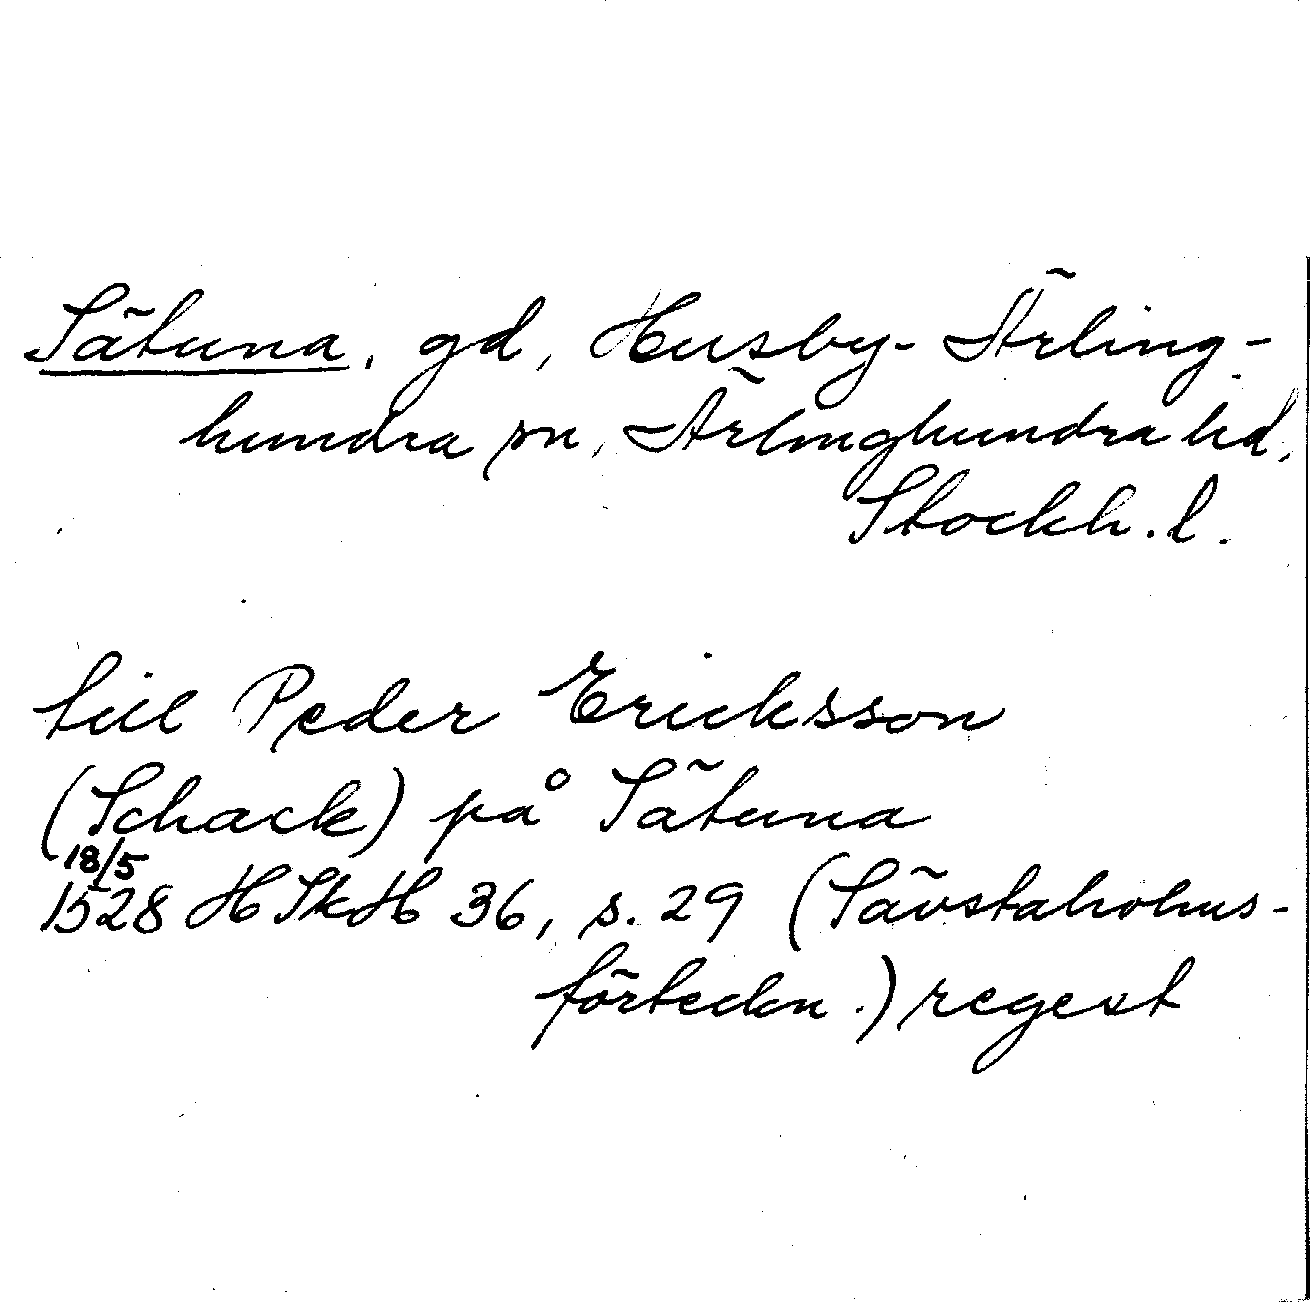 Sätuna, gd, Husby-Ärling-
hundra sn, Ärlinghundra hd,
Stockh. l.
till Peder Ericksson
(Schack) på Sätuna
18/5
1528 HSkH 36, s. 29 (Sävstaholms-
förteckn.) regest